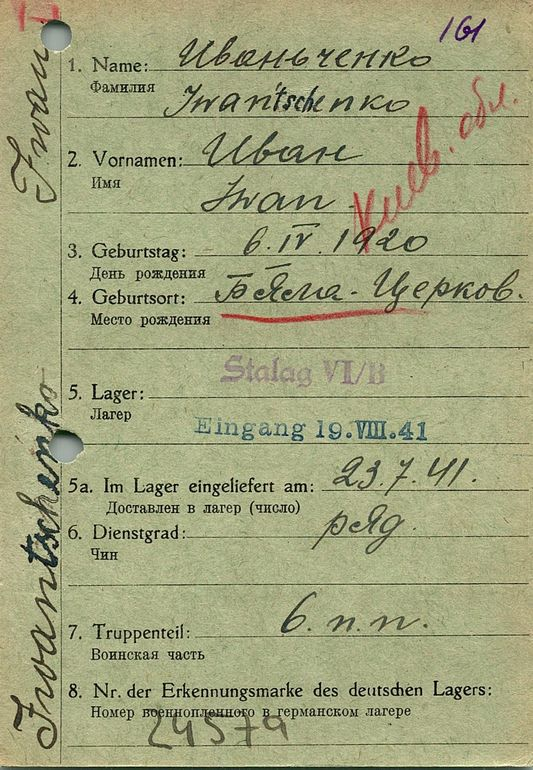 161
1. Name: Иваньченко
Фамилия
Iwantschenko
2. Vornamen: Иван
Имя
Iwan
Киев. обл.
3. Geburtstag: 6.IV.1920
День рождения
4. Geburtsort: Бяла-Церков.
Место рождения
Stalag VI/B
5. Lager:
Лагер
Eingang 19.VIII.41
5a. Im Lager eingeliefert am: 23.7.41.
Доставлен в лагер (число)
6. Dienstgrad: ряд.
Чин
7. Truppenteil: 6. п. п.
Воинская часть
8. Nr. der Erkennungsmarke des deutschen Lagers:
Номер военнопленного в германском лагере
24579
Iwantschenko Iwan